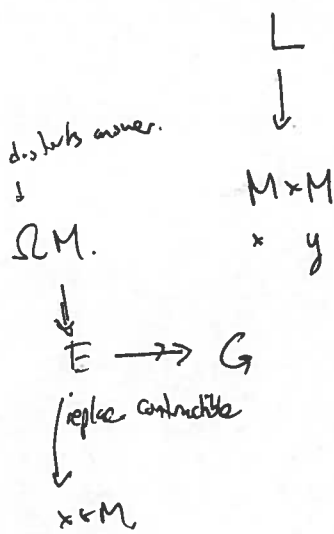 L
M × M
x y
answer.
ΩM.
E → G
replace contractible
x ∈ M